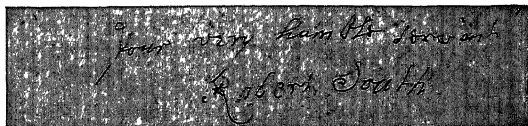 your very humble servant
Robert South.